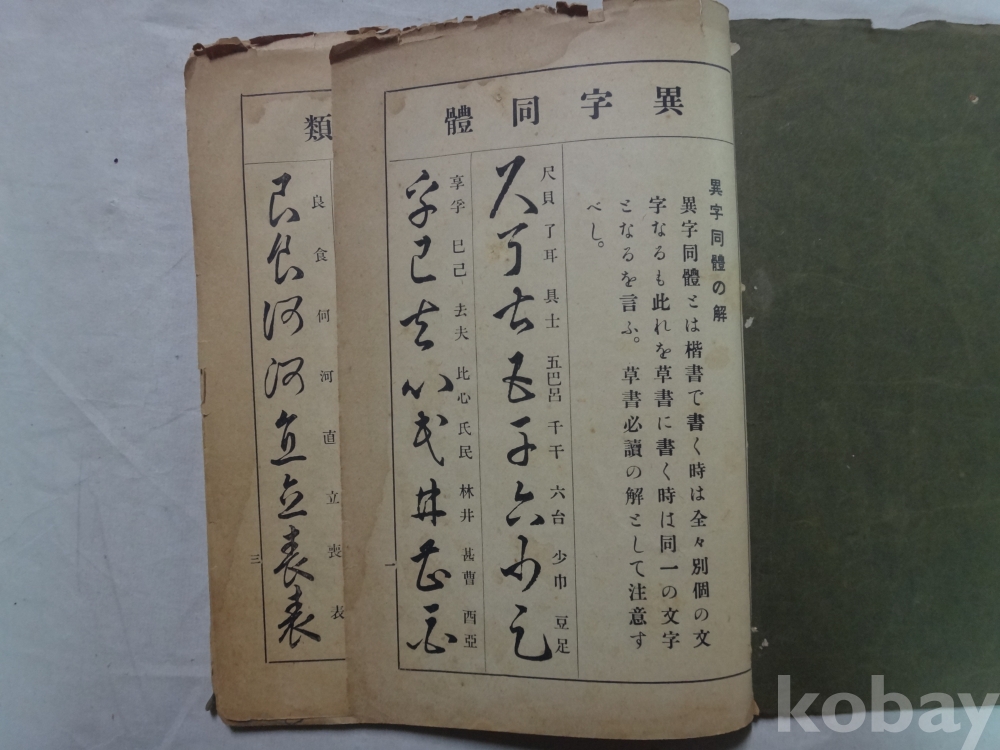 異字同體
異字同體の解
異字同體とは楷書で書く時は全々別個の文
字なるも此れを草書に書く時は同一の文字
となるを言ふ。草書必讀の解として注意す
べし。
尺貝 了耳 具士 五巴呂 千干 六台 少巾 豆足
享孚 巳己 去夫 比心 氏民 林井 甚曹 西亞
一
類
良 食 何 河 直 立 喪 表
三
kobay